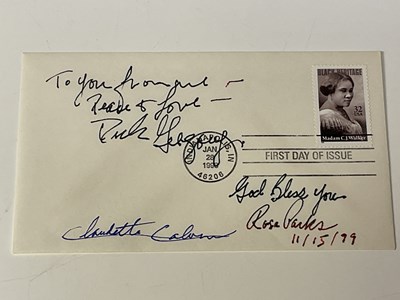 To you from me –
Peace & Love –
Dick Gregory
BLACK HERITAGE
32
USA
Madam C.J. Walker
INDIANAPOLIS, IN
JAN
28
46206
FIRST DAY OF ISSUE
God Bless You
Rosa Parks
11/15/99
Claudette Colvin